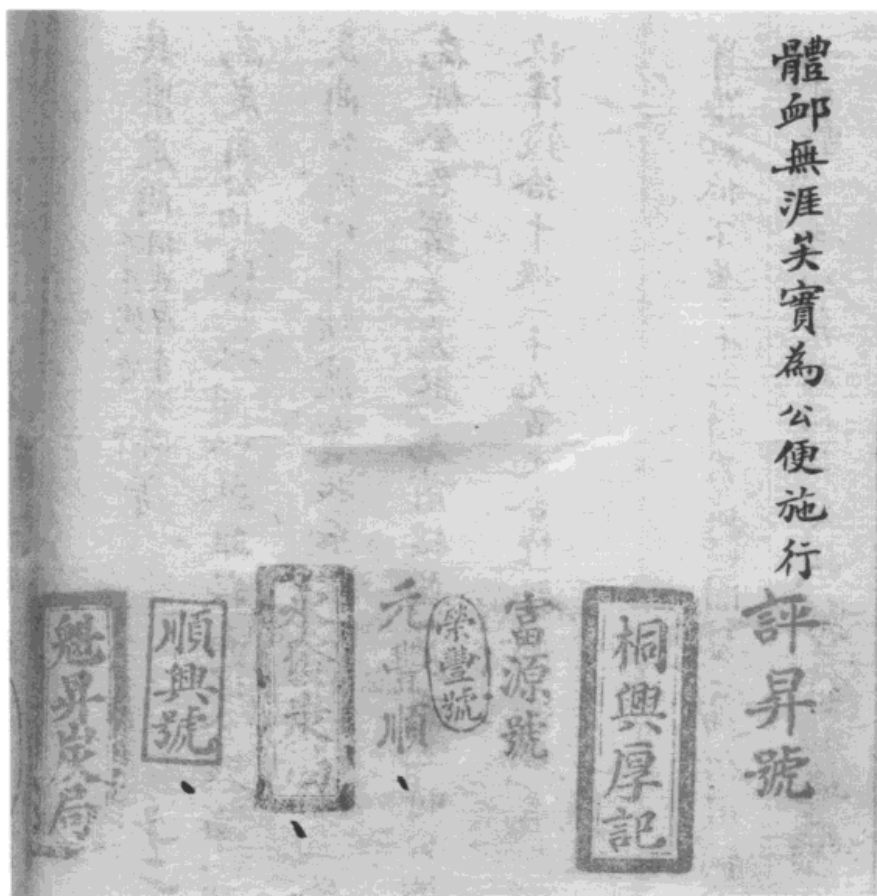 體卹無涯矣實為公便施行
評昇號
桐興厚記
富源號
榮豐號
元豐順
順興號
魁昇炭局